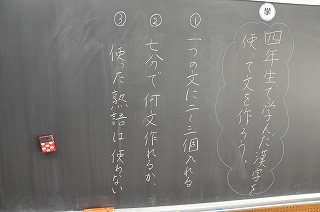 挙
四年生で学んだ漢字を
使って文を作ろう。
① 一つの文に二〜三個入れる
② 七分で何文作れるか。
③ 使った熟語は使わない。